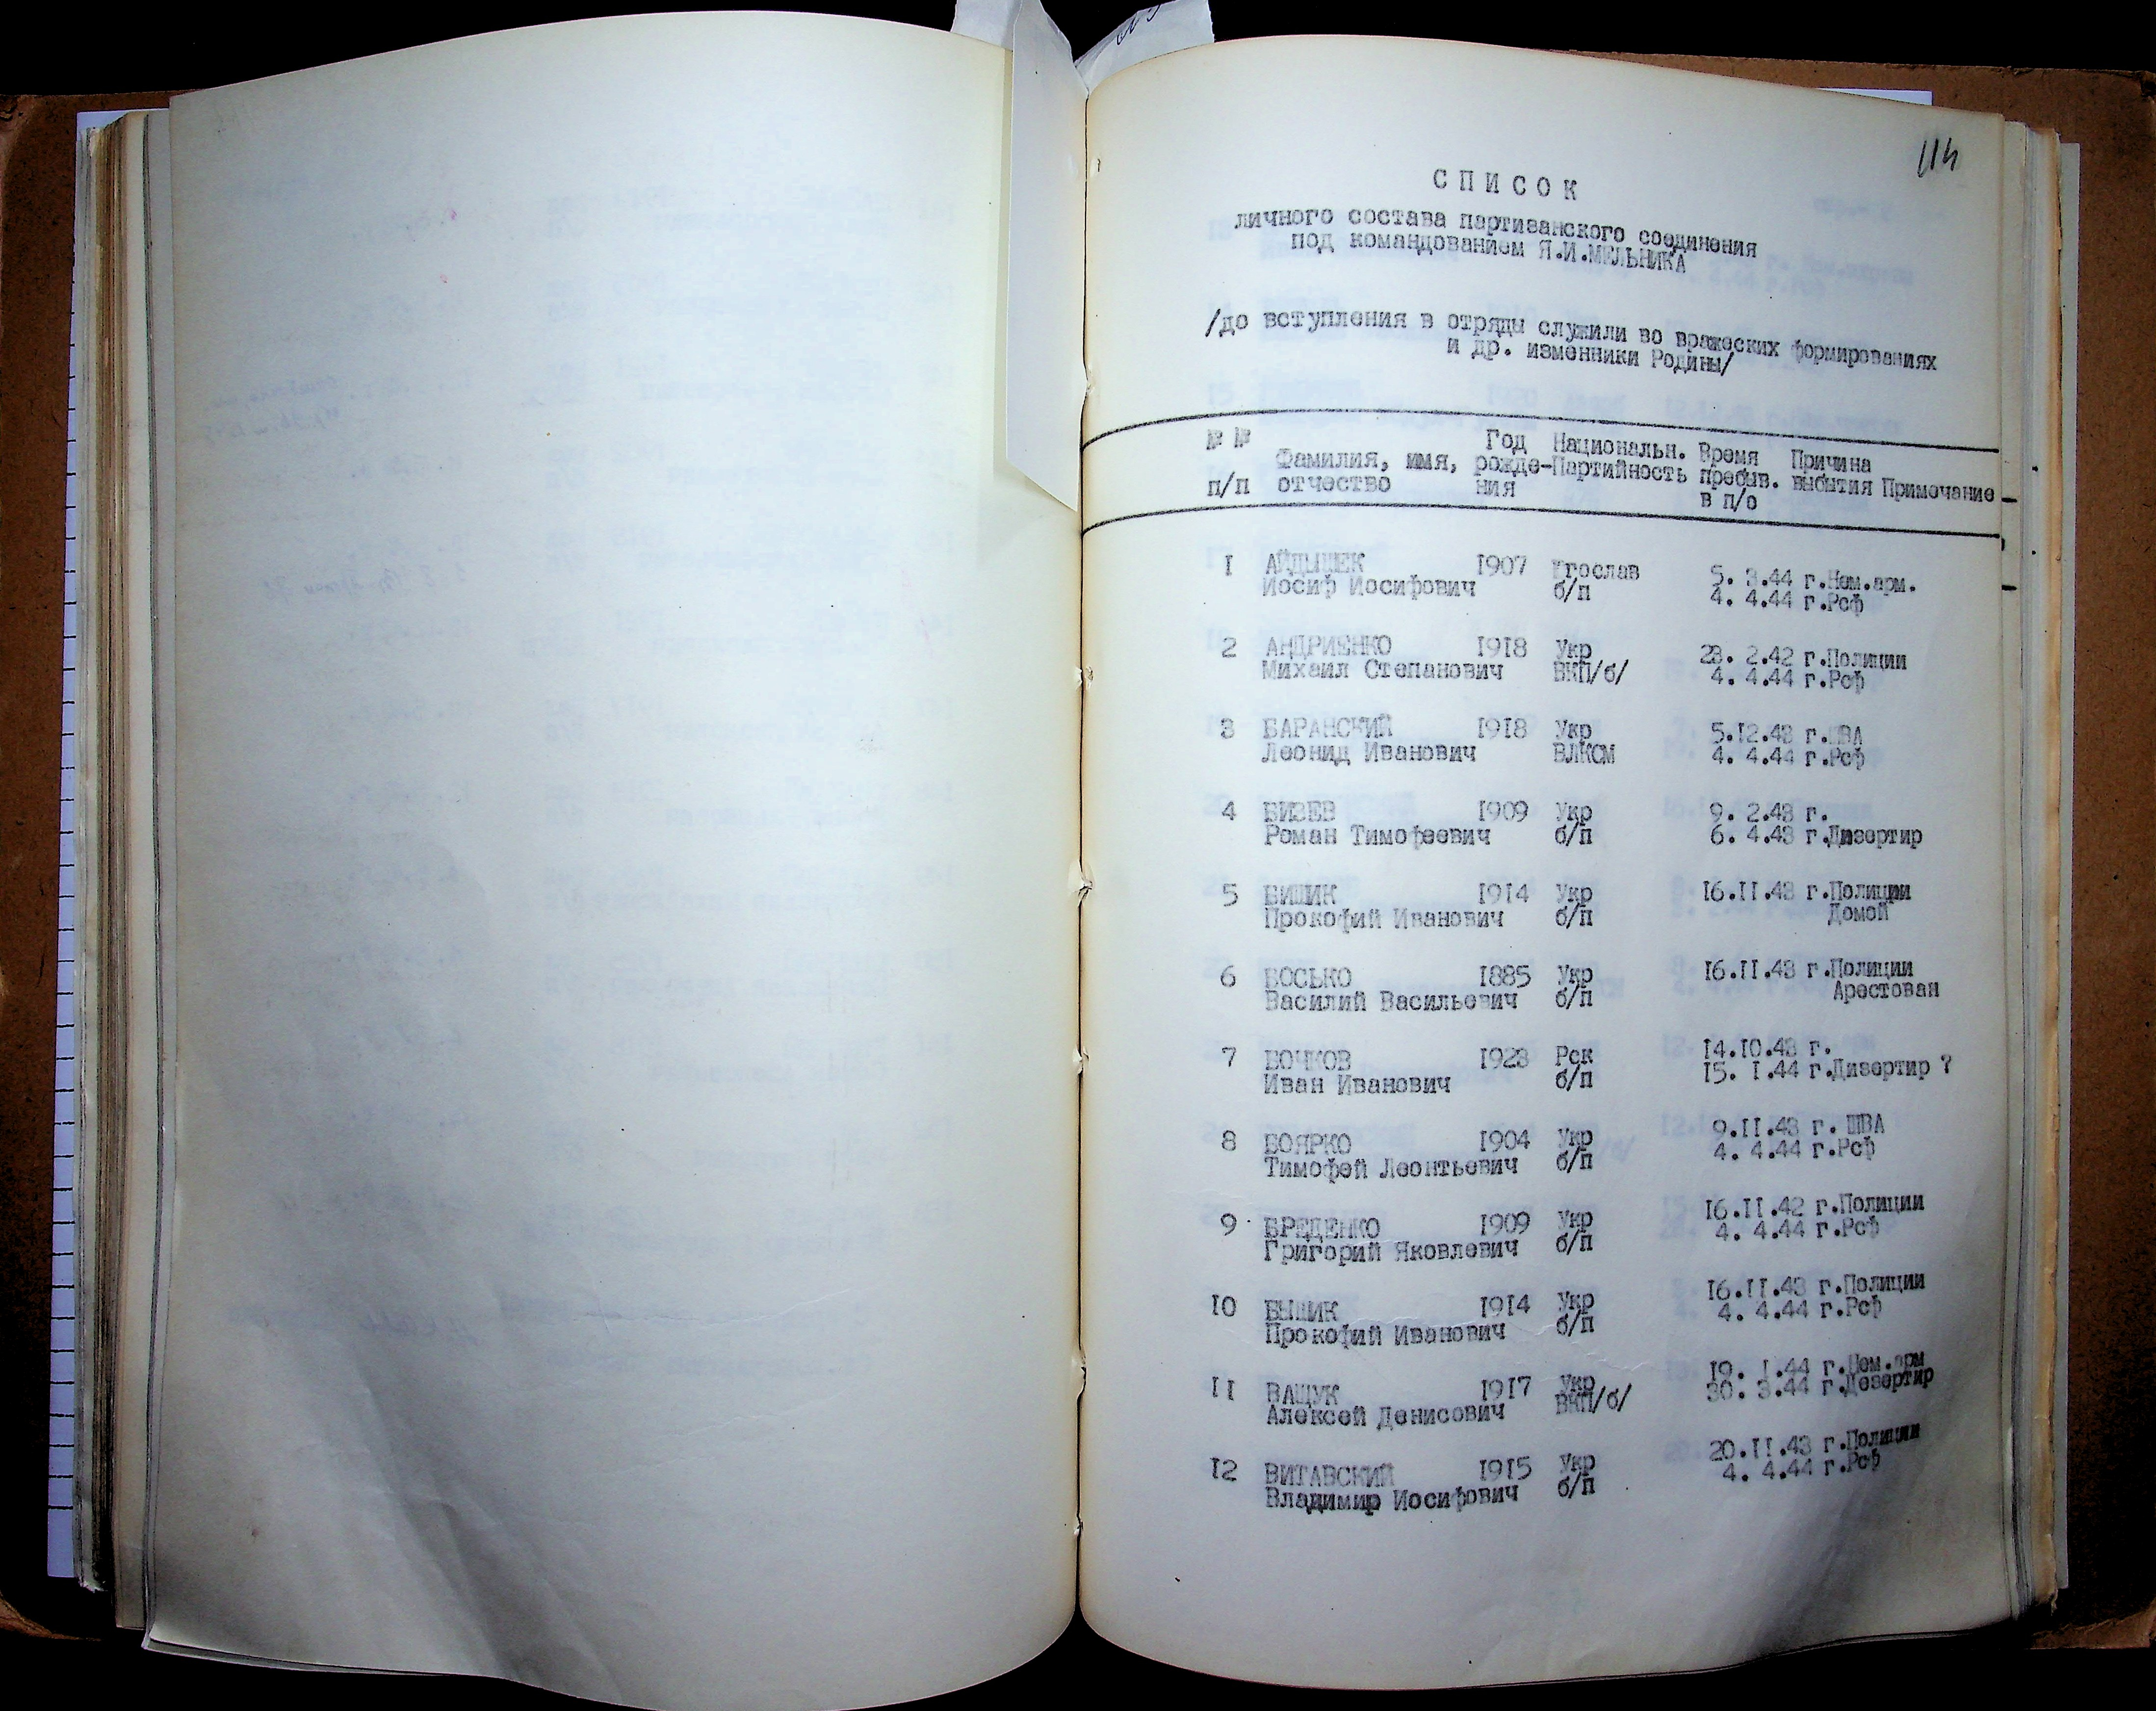 114
СПИСОК
личного состава партизанского соединения
под командованием Я.И.МЕЛЬНИКА
/до вступления в отряды служили во вражеских формированиях
и др. изменники Родины/
№ № Фамилия, имя, Год Национальн. Время Причина
п/п отчество рожде- Партийность пребыв. выбытия Примечание
ния в п/о
1 АЙДЫШЕК 1907 Югослав 5. 3.44 г.Нем.арм.
Иосиф Иосифович б/п 4. 4.44 г.Рсф
2 АНДРИЕНКО 1918 Укр 23. 2.42 г.Полиции
Михаил Степанович ВКП/б/ 4. 4.44 г.Рсф
3 БАРАНСКИЙ 1918 Укр 5.12.43 г.ШВА
Леонид Иванович ВЛКСМ 4. 4.44 г.Рсф
4 БИЗЕВ 1909 Укр 9. 2.43 г.
Роман Тимофеевич б/п 6. 4.43 г.Дизертир
5 БИШИК 1914 Укр 16.11.43 г.Полиции
Прокофий Иванович б/п Домой
6 БОСЬКО 1885 Укр 16.11.43 г.Полиции
Василий Васильевич б/п Арестован
7 БОЧКОВ 1923 Рск 14.10.43 г.
Иван Иванович б/п 15. 1.44 г.Дизертир ?
8 БОЯРКО 1904 Укр 9.11.43 г. ШВА
Тимофей Леонтьевич б/п 4. 4.44 г.Рсф
9 БРЕДЕНКО 1909 Укр 16.11.42 г.Полиции
Григорий Яковлевич б/п 4. 4.44 г.Рсф
10 БЫШИК 1914 Укр 16.11.43 г.Полиции
Прокофий Иванович б/п 4. 4.44 г.Рсф
11 ВАЩУК 1917 Укр 19. 1.44 г.Нем.арм
Алексей Денисович ВКП/б/ 30. 3.44 г.Дезертир
12 ВИТАВСКИЙ 1915 Укр 20.11.43 г.Полиции
Владимир Иосифович б/п 4. 4.44 г.Рсф